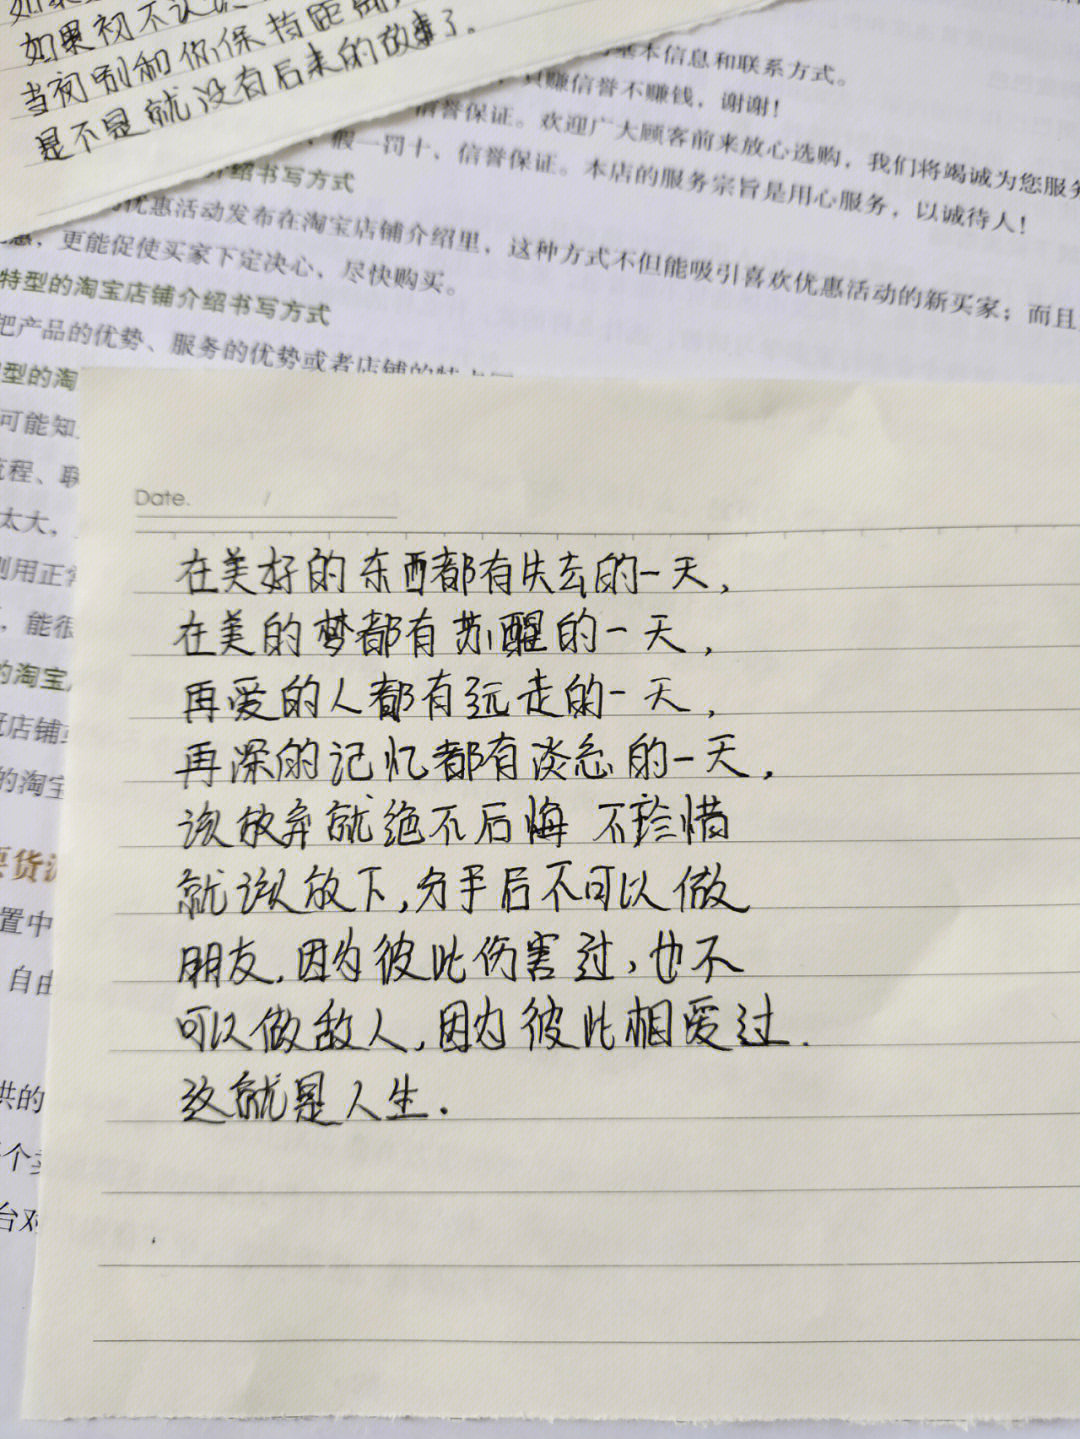 当初别和你保持距离,
是不是就没有后来的故事了.
基本信息和联系方式。
只赚信誉不赚钱，谢谢！
信誉保证。欢迎广大顾客前来放心选购，我们将竭诚为您服务
假一罚十、信誉保证。本店的服务宗旨是用心服务，以诚待人！
介绍书写方式
优惠活动发布在淘宝店铺介绍里，这种方式不但能吸引喜欢优惠活动的新买家；而且
更能促使买家下定决心、尽快购买。
特型的淘宝店铺介绍书写方式
把产品的优势、服务的优势或者店铺的特点
型的淘
可能知
流程、联
太大，
利用正常
，能很
的淘宝
店铺
的淘宝
货
置中
自由
供的
个
台对
Date. /
在美好的东西都有失去的一天,
在美的梦都有苏醒的一天,
再爱的人都有远走的一天,
再深的记忆都有淡忘的一天,
该放弃就绝不后悔 不珍惜
就该放下,分手后不可以做
朋友,因为彼此伤害过,也不
可以做敌人,因为彼此相爱过.
这就是人生.